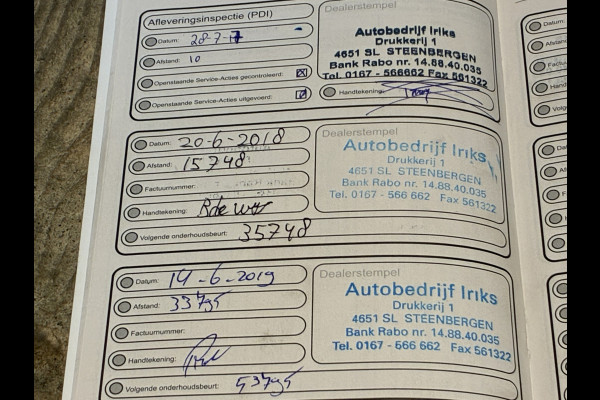 Afleveringsinspectie (PDI)
Datum: 28-7-17
Afstand: 10
Openstaande Service-Acties gecontroleerd:
Openstaande Service-Acties uitgevoerd:
Dealerstempel
Autobedrijf Iriks
Drukkerij 1
4651 SL STEENBERGEN
Bank Rabo nr. 14.88.40.035
Tel. 0167 - 566662 Fax 561322
Handtekening:
Datum: 20-6-2018
Afstand: 15748
Factuurnummer:
Handtekening:
Volgende onderhoudsbeurt: 35748
Dealerstempel
Autobedrijf Iriks
Drukkerij 1
4651 SL STEENBERGEN
Bank Rabo nr. 14.88.40.035
Tel. 0167 - 566 662 Fax 561322
Datum: 14-6-2019
Afstand: 33795
Factuurnummer:
Handtekening:
Volgende onderhoudsbeurt: 53795
Dealerstempel
Autobedrijf Iriks
Drukkerij 1
4651 SL STEENBERGEN
Bank Rabo nr. 14.88.40.035
Tel. 0167 - 566 662 Fax 561322
Datum:
Afstand: